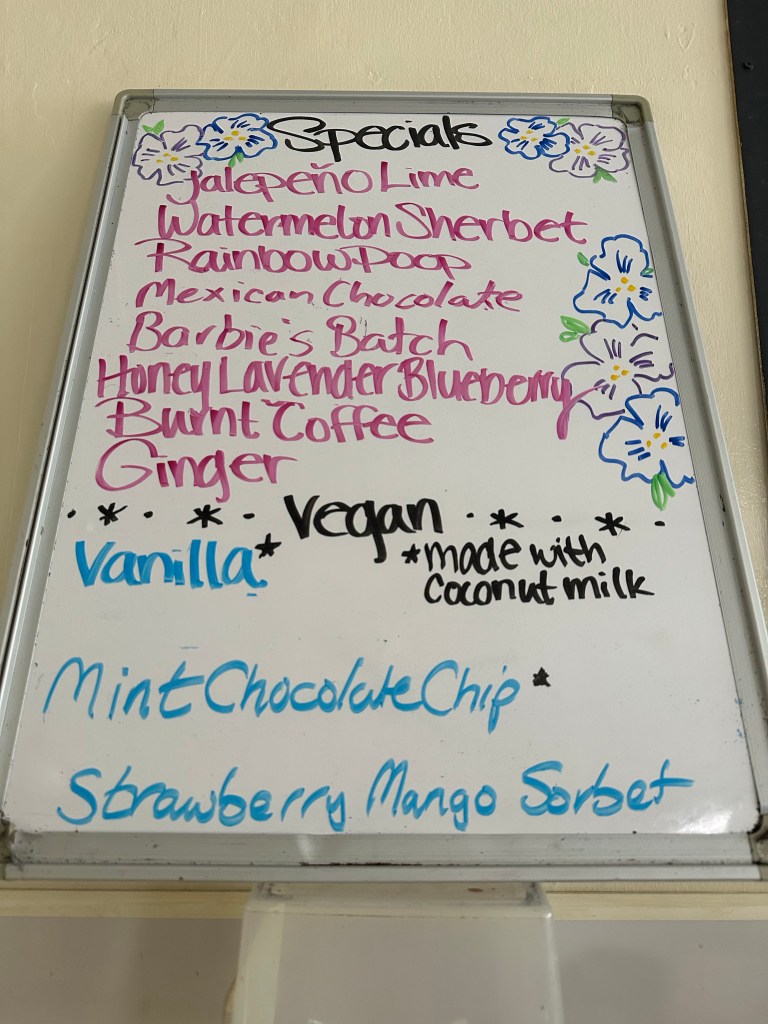 Specials
Jalepeño Lime
Watermelon Sherbet
Rainbow Poop
Mexican Chocolate
Barbie's Batch
Honey Lavender Blueberry
Burnt Toffee
Ginger
· * · * · Vegan · * · * ·
Vanilla* *made with
coconut milk
Mint Chocolate Chip *
Strawberry Mango Sorbet